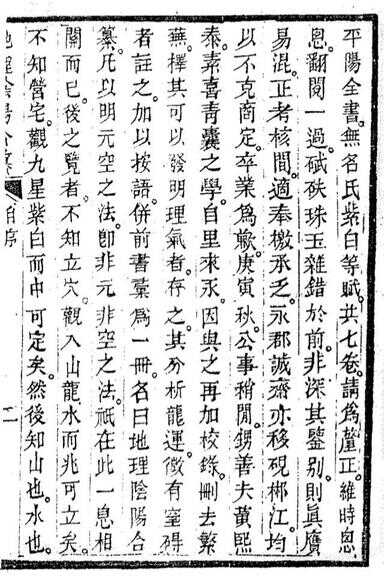 平陽全書。無名氏紫白等賦。共七卷。請爲釐正。維時悤
悤翻閱一過。碔砆珠玉。雜錯於前。非深其鑒别。則真贗
易混。正考核間。適奉檄承乏永郡。誠齋亦移硯郴江。均
以不克商定卒業爲歉。庚寅秋。公事稍閒。甥善夫黃熙
泰。素喜靑囊之學。自里來永。因與之再加校錄。刪去繁
蕪。擇其可以發明理氣者。存之。其分析龍運。微有窒碍
者。註之。加以按語。倂前書彙爲一冊。名曰地理陰陽合
纂。凡以明元空之法。卽非元非空之法。祇在此一息相
關而已。後之覽者。不知立穴。觀入山龍水而兆可立矣。
不知營宅。觀九星紫白而中可定矣。然後知山也。水也。
地理陰陽合纂
自序
二